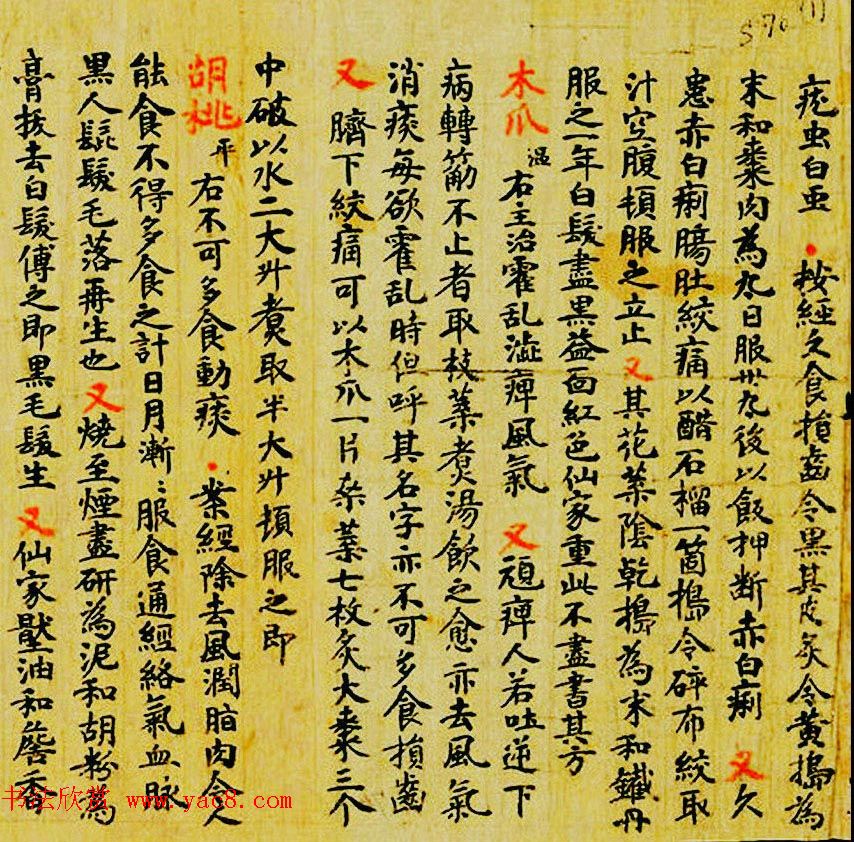 S 76 (1)
疣虫白虫 · 按經久食損齒令黑其皮炙令黃搗為
末和棗肉為丸日服卅丸後以飯押断赤白痢 又久
患赤白痢膓肚絞痛以醋石榴一箇搗令碎布絞取
汁空腹頓服之立止 又其花葉陰乾搗為末和鐵丹
服之一年白髮盡黑益面紅色仙家重此不盡書其方
木爪 温 右主治霍乱澁痺風氣 又頑痺人若吐逆下
病轉筋不止者取枝葉煑湯飲之愈亦去風氣
消痰每欲霍乱時但呼其名字亦不可多食損齒
又 臍下絞痛可以木爪一片桒葉七枚炙大棗三个
中破以水二大升煑取半大升頓服之即
胡桃 平 右不可多食動痰 · 案經除去風潤脂肉令人
能食不得多食之計日月漸〻服食通經絡氣血脉
黑人髭鬚毛落再生也 又燒至煙盡研為泥和胡粉為
膏拔去白髮傅之即黑毛髮生 又仙家壓油和詹香
书法欣赏 www.yac8.com